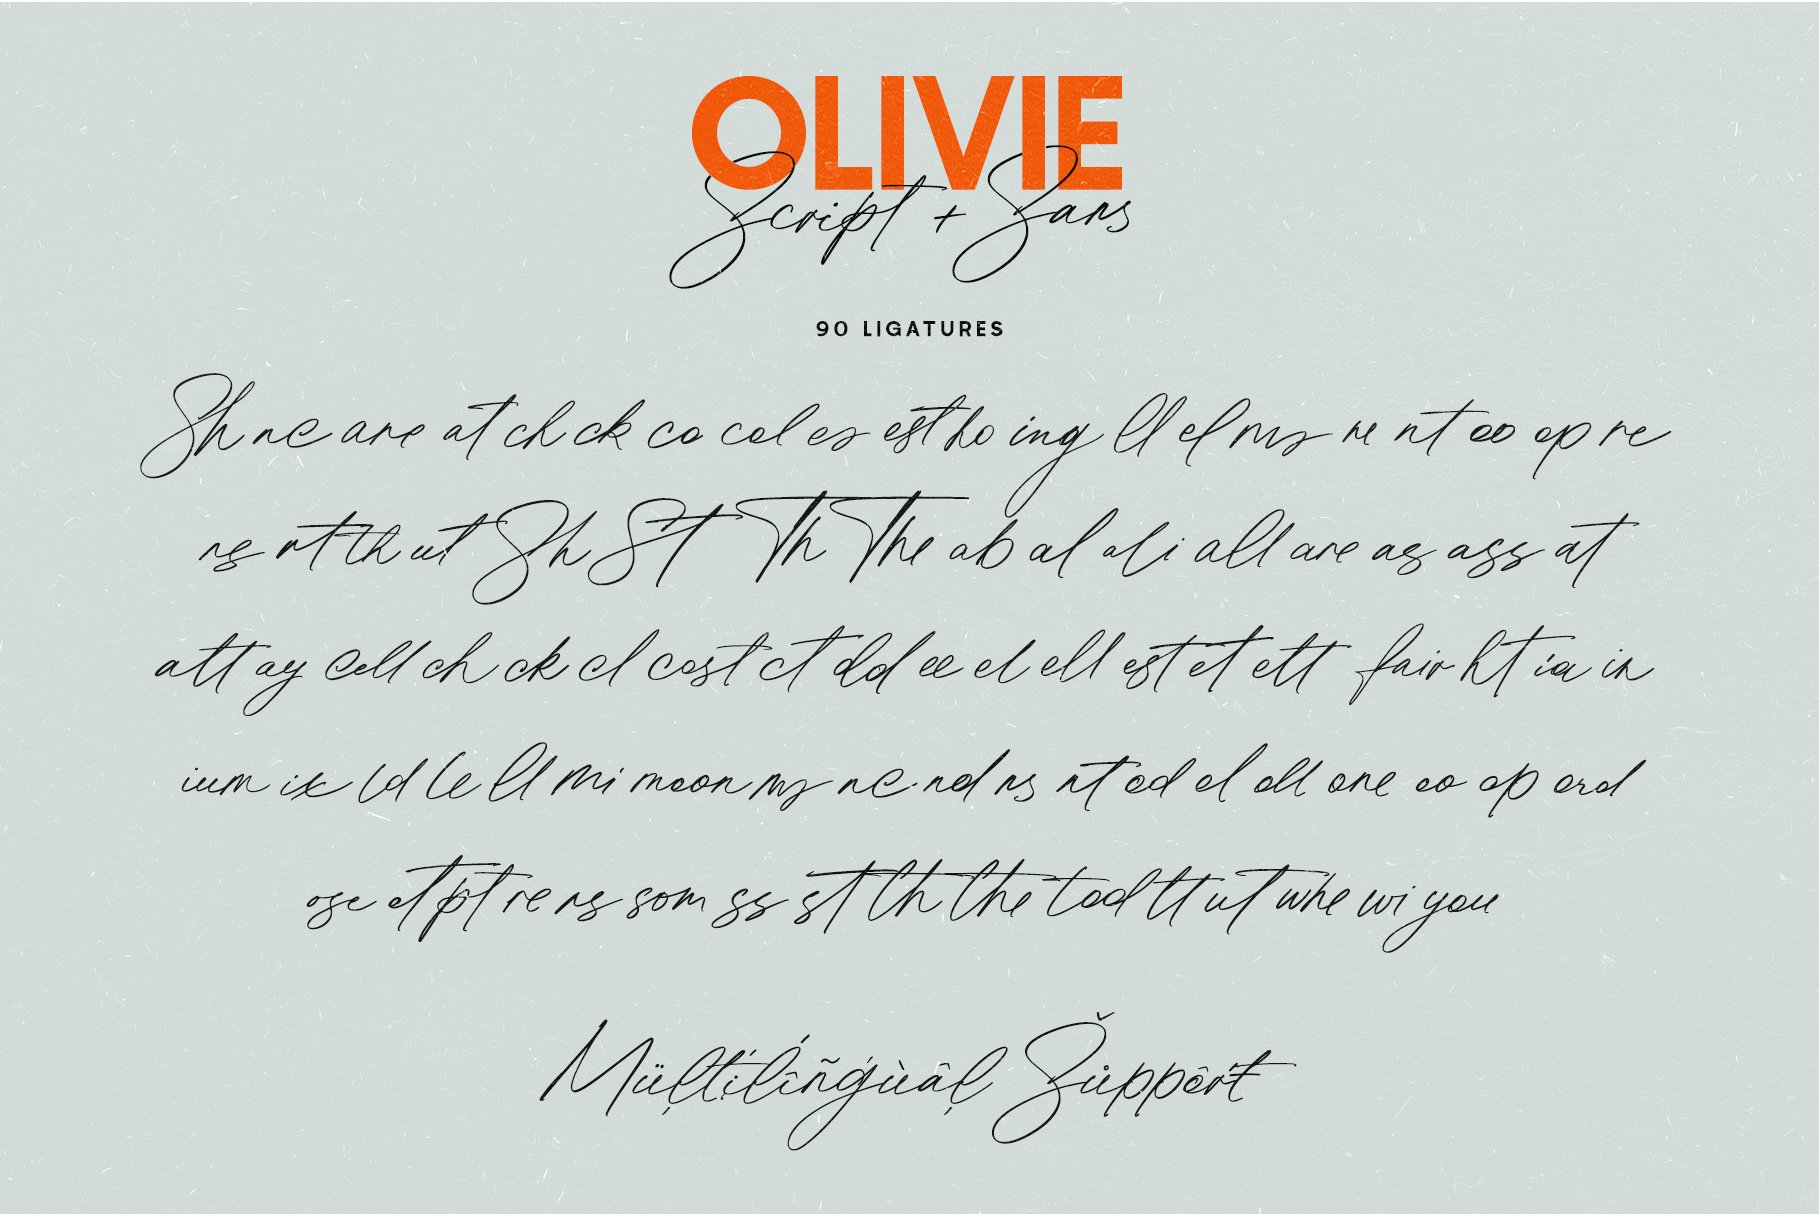 OLIVIE
Script + Sans
90 LIGATURES
Sh ne are at ch ck co col es est ho ing ll el my re nt oo op re
rs rt th ut Sh St Th The ab al al i all are as ass at
att ay cell ch ck cl cost ct dd ee el ell est et ett fair ht ia in
ium ix ld le ll mi moon my ne nd ns nt od ol oll one oo op ord
ose ot pt re rs som ss st th the tod tt ut whe wi you
Müļtíļîñģùâļ Šůppêŕŧ